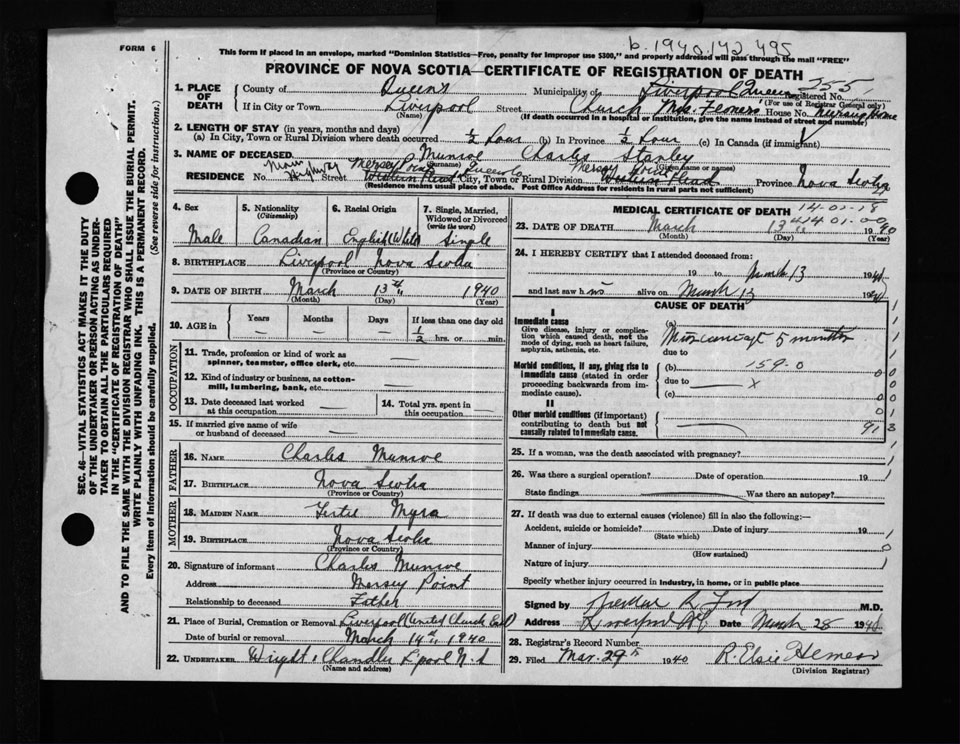 b. 1940.142 495
FORM 6
This form if placed in an envelope, marked "Dominion Statistics—Free, penalty for improper use $300," and properly addressed will pass through the mail "FREE"
PROVINCE OF NOVA SCOTIA—CERTIFICATE OF REGISTRATION OF DEATH
1. PLACE OF DEATH
County of Queens Municipality of Liverpool Queens Registered No. 255
(For use of Registrar General only)
If in City or Town Liverpool Street Church House No. Nursing Home
(Name) (If death occurred in a hospital or institution, give the name instead of street and number)
2. LENGTH OF STAY (in years, months and days)
(a) In City, Town or Rural Division where death occurred ½ hour (b) In Province ½ hour (c) In Canada (if immigrant)
3. NAME OF DECEASED Munroe Charles Stanley
RESIDENCE No. Main Highway Mersey Point Queens Co. City, Town or Rural Division Western Head Province Nova Scotia
(Residence means usual place of abode. Post Office Address for residents in rural parts not sufficient)
4. Sex Male
5. Nationality (Citizenship) Canadian
6. Racial Origin English (White)
7. Single, Married, Widowed or Divorced (write the word) Single
8. BIRTHPLACE Liverpool Nova Scotia
(Province or Country)
9. DATE OF BIRTH March 13th 1940
(Month) (Day) (Year)
10. AGE in Years Months Days If less than one day old
— — — ½ hrs. or min.
OCCUPATION
11. Trade, profession or kind of work as spinner, teamster, office clerk, etc. —
12. Kind of industry or business, as cotton-mill, lumbering, bank, etc. —
13. Date deceased last worked at this occupation —
14. Total yrs. spent in this occupation —
15. If married give name of wife or husband of deceased —
FATHER
16. NAME Charles Munroe
17. BIRTHPLACE Nova Scotia
(Province or Country)
MOTHER
18. MAIDEN NAME Myra
19. BIRTHPLACE Nova Scotia
(Province or Country)
20. Signature of informant Charles Munroe
Address Mersey Point
Relationship to deceased Father
21. Place of Burial, Cremation or Removal Liverpool (United Church Cem)
Date of burial or removal March 14th, 1940
22. UNDERTAKER Wright & Chandler L'pool N.S
(Name and address)
MEDICAL CERTIFICATE OF DEATH 14-01-18
414.01-00
23. DATE OF DEATH March 13th 1940
(Month) (Day) (Year)
24. I HEREBY CERTIFY that I attended deceased from:
19 to March 13 1940
and last saw h alive on March 13 1940
CAUSE OF DEATH
I
Immediate cause
Give disease, injury or complication which caused death, not the mode of dying, such as heart failure, asphyxia, asthenia, etc.
(a) Miscarriage 5 months
due to
Morbid conditions, if any, giving rise to immediate cause (stated in order proceeding backwards from immediate cause).
(b) 159-0
due to x
(c)
II
Other morbid conditions (if important) contributing to death but not causally related to immediate cause.
25. If a woman, was the death associated with pregnancy?
26. Was there a surgical operation? Date of operation 19
State findings Was there an autopsy?
27. If death was due to external causes (violence) fill in also the following:—
Accident, suicide or homicide? Date of injury 19
(State which)
Manner of injury
(How sustained)
Nature of injury
Specify whether injury occurred in industry, in home, or in public place
Signed by M.D.
Address Liverpool NS Date March 28 1940
28. Registrar's Record Number
29. Filed Mar. 29th 1940 R. Elsie
(Division Registrar)
SEC. 46—VITAL STATISTICS ACT MAKES IT THE DUTY
OF THE UNDERTAKER OR PERSON ACTING AS UNDERTAKER TO OBTAIN ALL THE PARTICULARS REQUIRED
IN THE "CERTIFICATE OF REGISTRATION OF DEATH"
AND TO FILE THE SAME WITH THE DIVISION REGISTRAR WHO SHALL ISSUE THE BURIAL PERMIT.
WRITE PLAINLY WITH UNFADING INK. THIS IS A PERMANENT RECORD.
Every item of information should be carefully supplied. (See reverse side for instructions.)